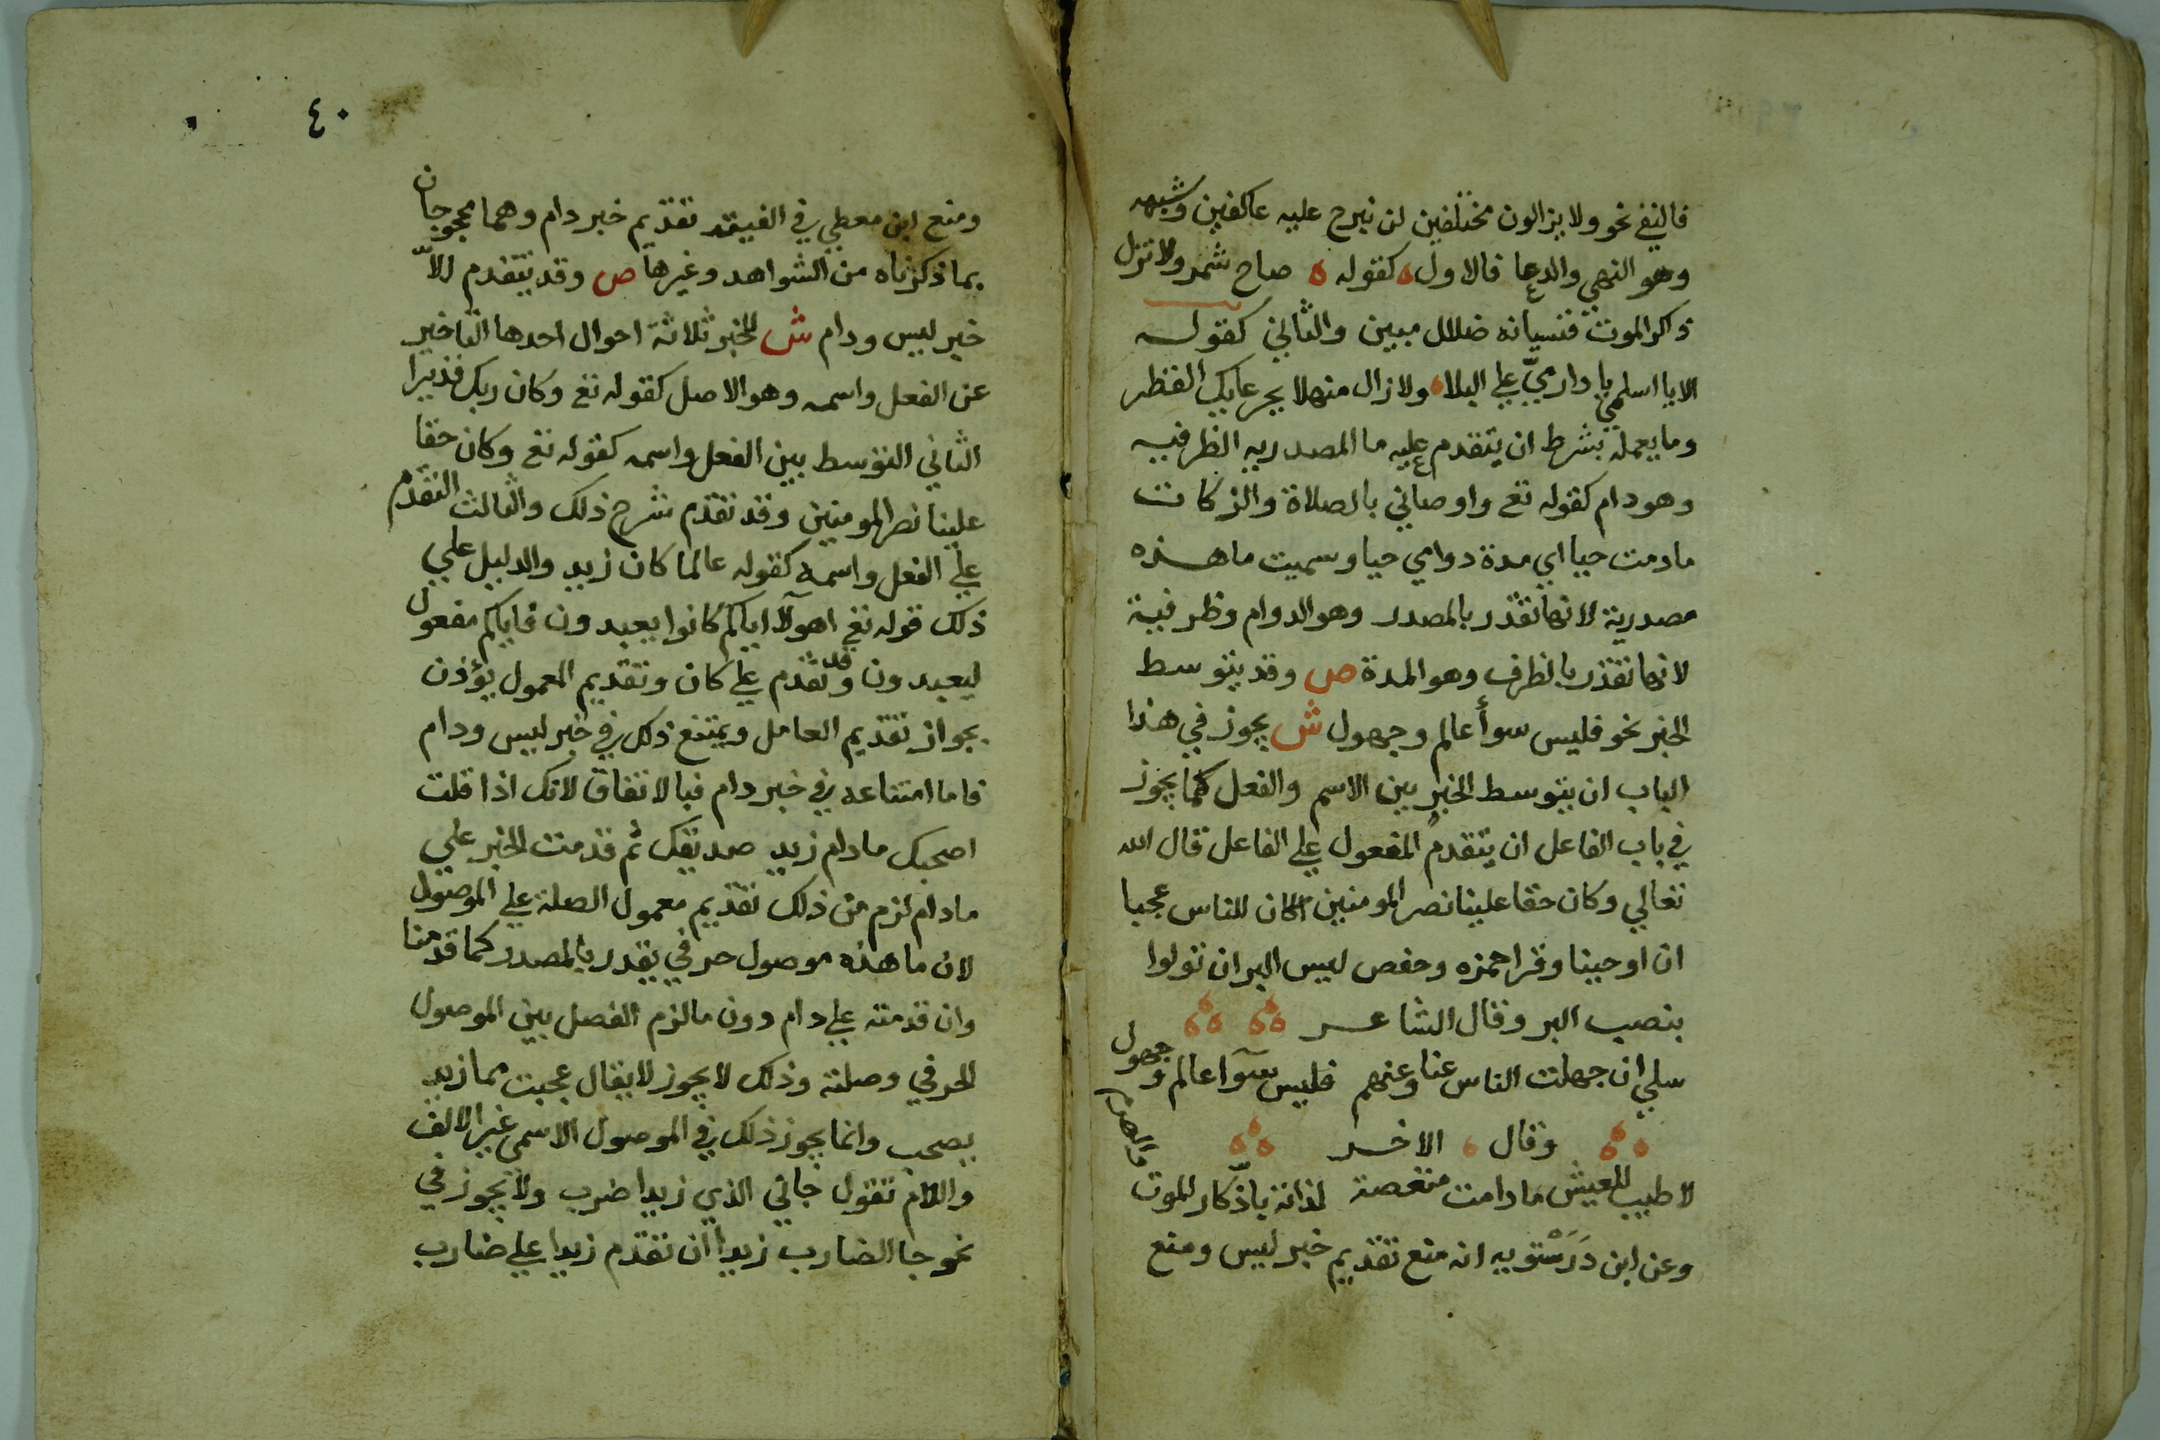 فالنفي نحو ولا يزالون مختلفين لن نبرح عليه عاكفين وشبهه
وهو النهي والدعا فالاول كقوله صاح شمر ولا تزل
ذاكر الموت فنسيانه ضلال مبين والثاني كقوله
الا يا اسلمي يا دار ميّ علي البلا ولا زال منهلا بجرعايك القطر
وما يعمله بشرط ان يتقدم عليه ما المصدريه الظرفيه
وهو دام كقوله تع واوصاني بالصلاة والزكات
ما دمت حيا اي مدة دوامي حيا وسميت ما هذه
مصدرية لانها تقدر بالمصدر وهو الدوام وظرفية
لانها تقدر بالظرف وهو المدة ص وقد يتوسط
الخبر نحو فليس سوأ عالم وجهول ش يجوز في هذا
الباب ان يتوسط الخبر بين الاسم والفعل كما يجوز
في باب الفاعل ان يتقدم المفعول علي الفاعل قال الله
تعالي وكان حقا علينا نصر المومنين اكان للناس عجبا
ان اوحينا وقرا حمزه وحفص ليس البر ان تولوا
بنصب البر وقال الشاعر
سلي ان جهلت الناس عنا وعنهم فليس سوآ عالم وجهول
وقال الاخر
لا طيب للعيش ما دامت منغصة لذاته باذّكار الموت والهرم
وعن ابن دَرَسْتويه انه منع تقديم خبر ليس ومنع
٤٠
ومنع ابن معطي في الفيته تقديم خبر دام وهما محجوجان
بما ذكرناه من الشواهد وغيرها ص وقد يتقدم الاّ
خبر ليس ودام ش للخبر ثلاثة احوال احدها التاخير
عن الفعل واسمه وهو الاصل كقوله تع وكان ربك قديرا
الثاني التوسط بين الفعل واسمه كقوله تع وكان حقا
علينا نصر المومنين وقد تقدم شرح ذلك والثالث التقدم
علي الفعل واسمه كقوله عالما كان زيد والدليل علي
ذلك قوله تع اهولآ اياكم كانوا يعبدون فاياكم مفعول
ليعبدون وقد تقدم علي كان وتقديم المعمول يؤذن
بجواز تقديم العامل ويمتنع ذلك في خبر ليس ودام
فاما امتناعه في خبر دام فبالاتفاق لانك اذا قلت
اصحبك ما دام زيد صديقك ثم قدمت الخبر علي
ما دام لزم من ذلك تقديم معمول الصلة علي الموصول
لان ما هذه موصول حرفي يقدر بالمصدر كما قدمنا
وان قدمته علي دام دون ما لزم الفصل بين الموصول
الحرفي وصلته وذلك لا يجوز لا يقال عجبت مما زيد
يصحب وانما يجوز ذلك في الموصول الاسمي غير الالف
واللام تقول جاني الذي زيدا ضرب ولا يجوز في
نحو جا الضارب زيدا ان تقدم زيدا علي ضارب